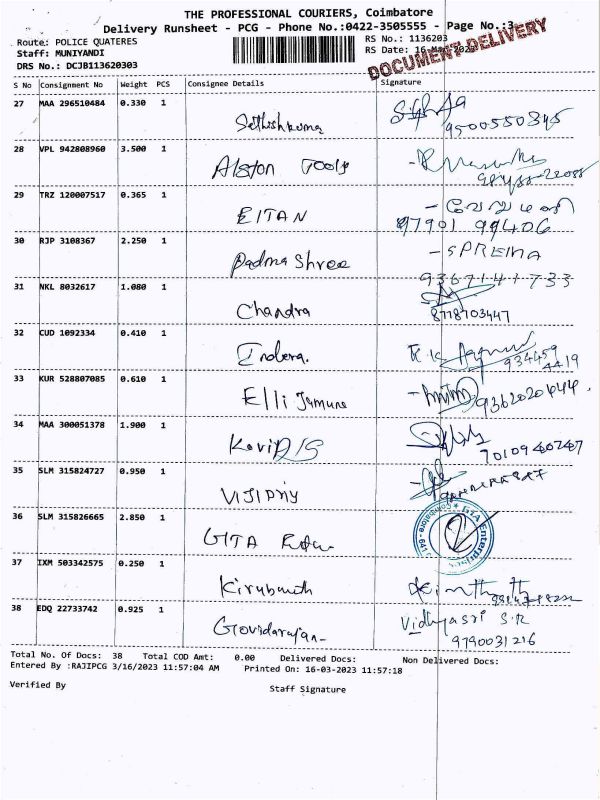 THE PROFESSIONAL COURIERS, Coimbatore
Delivery Runsheet - PCG - Phone No.:0422-3505555 - Page No.:3
Route: POLICE QUATERES
RS No.: 1136203
Staff: MUNIYANDI
RS Date: 16-Mar-2023
DRS No.: DCJB113620303
DOCUMENT DELIVERY
S No Consignment No Weight PCS Consignee Details Signature
27 MAA 296510484 0.330 1 Sathishkuma
9500550845
28 VPL 942808960 3.500 1 Alston Tools
29 TRZ 120007517 0.365 1 EITAN
97901 99406
30 RJP 3108367 2.250 1 Padma Shree - S PREMA
9367141733
31 NKL 8032617 1.080 1 Chandra
8778703447
32 CUD 1092334 0.410 1 Indera.
934459
4419
33 KUR 528807085 0.610 1 Elli Jamuna
34 MAA 300051378 1.900 1
7010940247
35 SLM 315824727 0.950 1 VIJIPRIY
36 SLM 315826665 2.850 1 GITA
GTA Enterprises
Coimbatore
37 IXM 503342575 0.250 1
38 EDQ 22733742 0.925 1 Govidarajan Vidhyasri S.R
9790031216
Total No. Of Docs: 38 Total COD Amt: 0.00 Delivered Docs: Non Delivered Docs:
Entered By :RAJIPCG 3/16/2023 11:57:04 AM Printed On: 16-03-2023 11:57:18
Verified By
Staff Signature